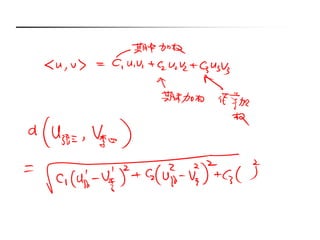 期中加权
<u,v> = C₁u₁v₁+C₂u₂v₂+C₃u₃v₃
期末加权 加权
d(u张三, v李四)
= √C₁(u¹张-v¹李)²+C₂(u²张-v²李)²+C₃( )²